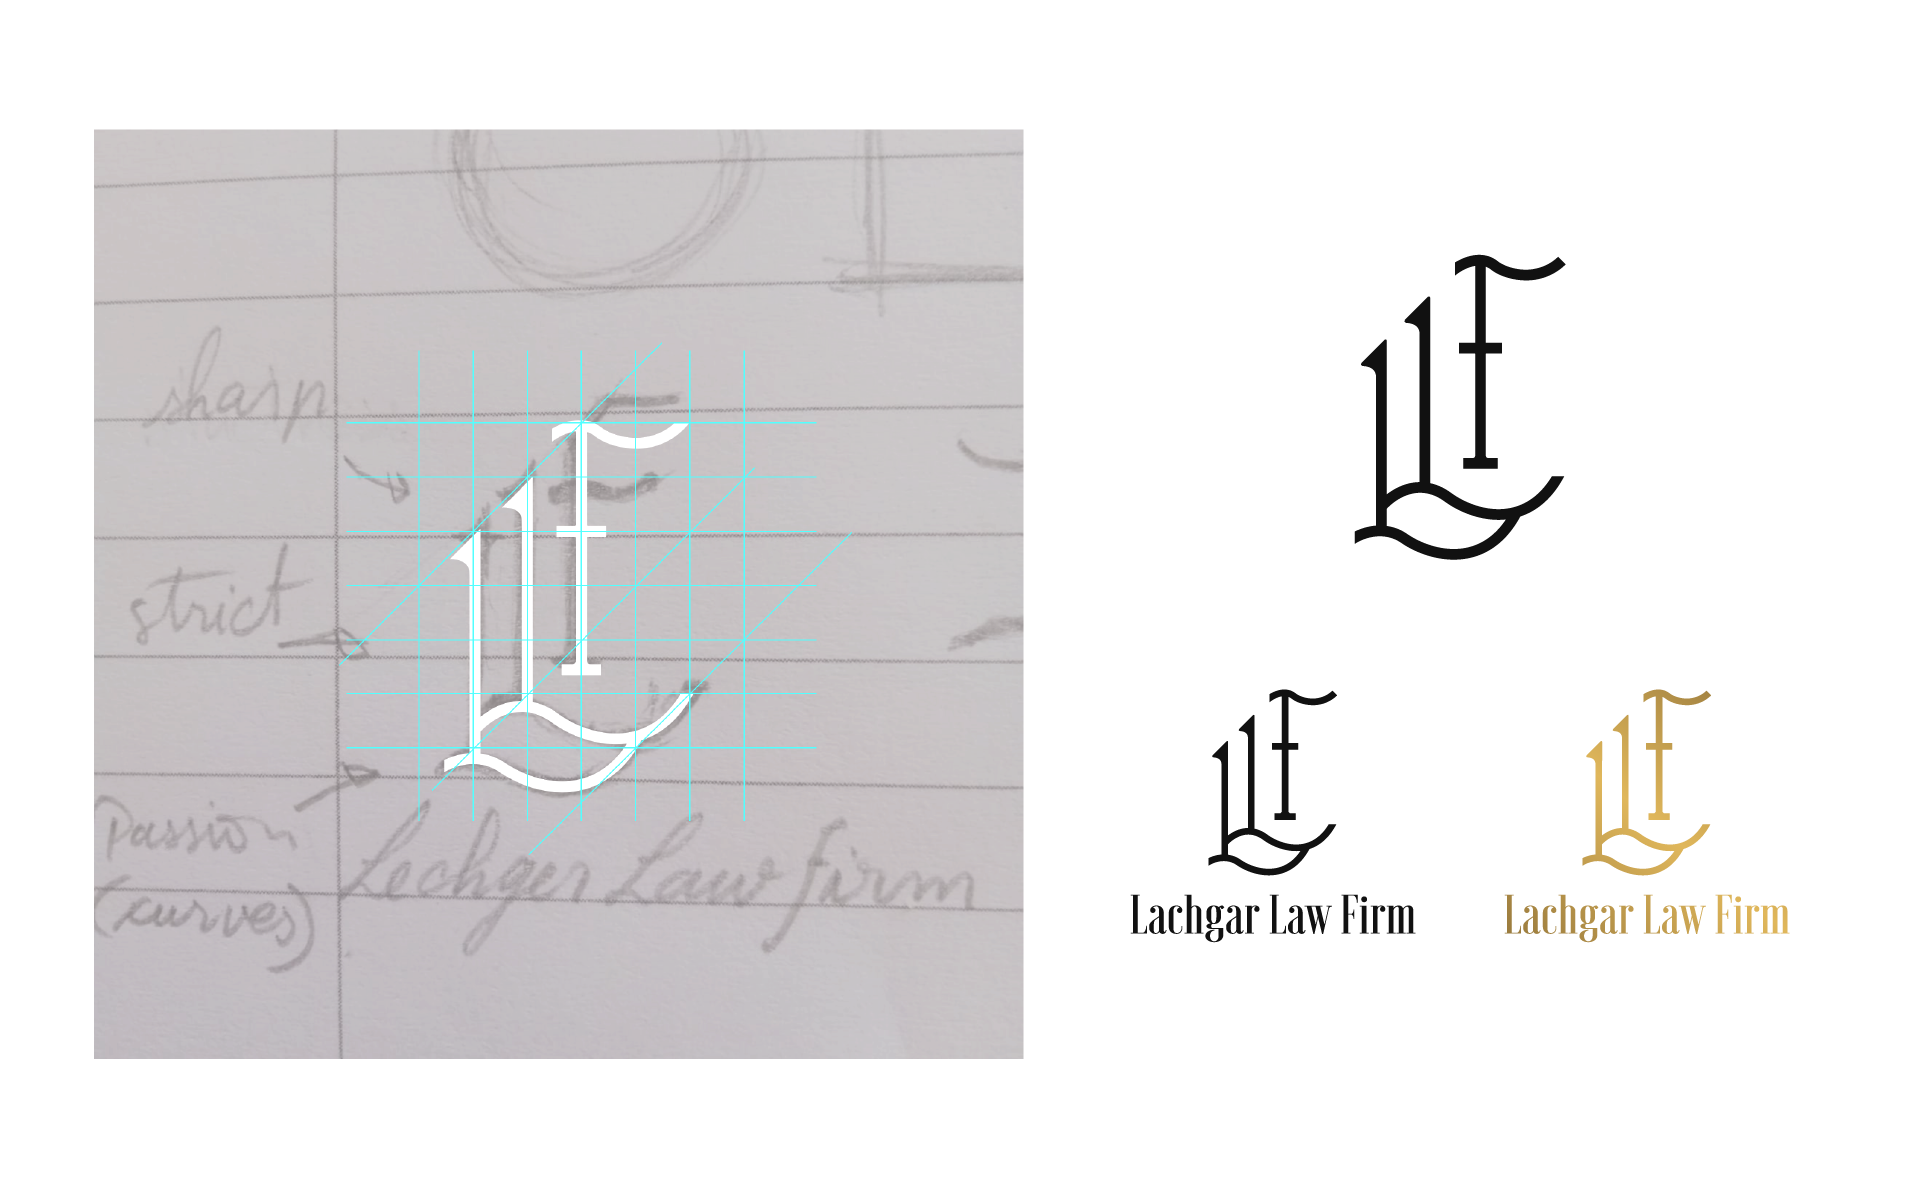 sharp
strict
Passion
(curves)
Lechger Law firm
LLF
Lachgar Law Firm
LLF
Lachgar Law Firm
LLF